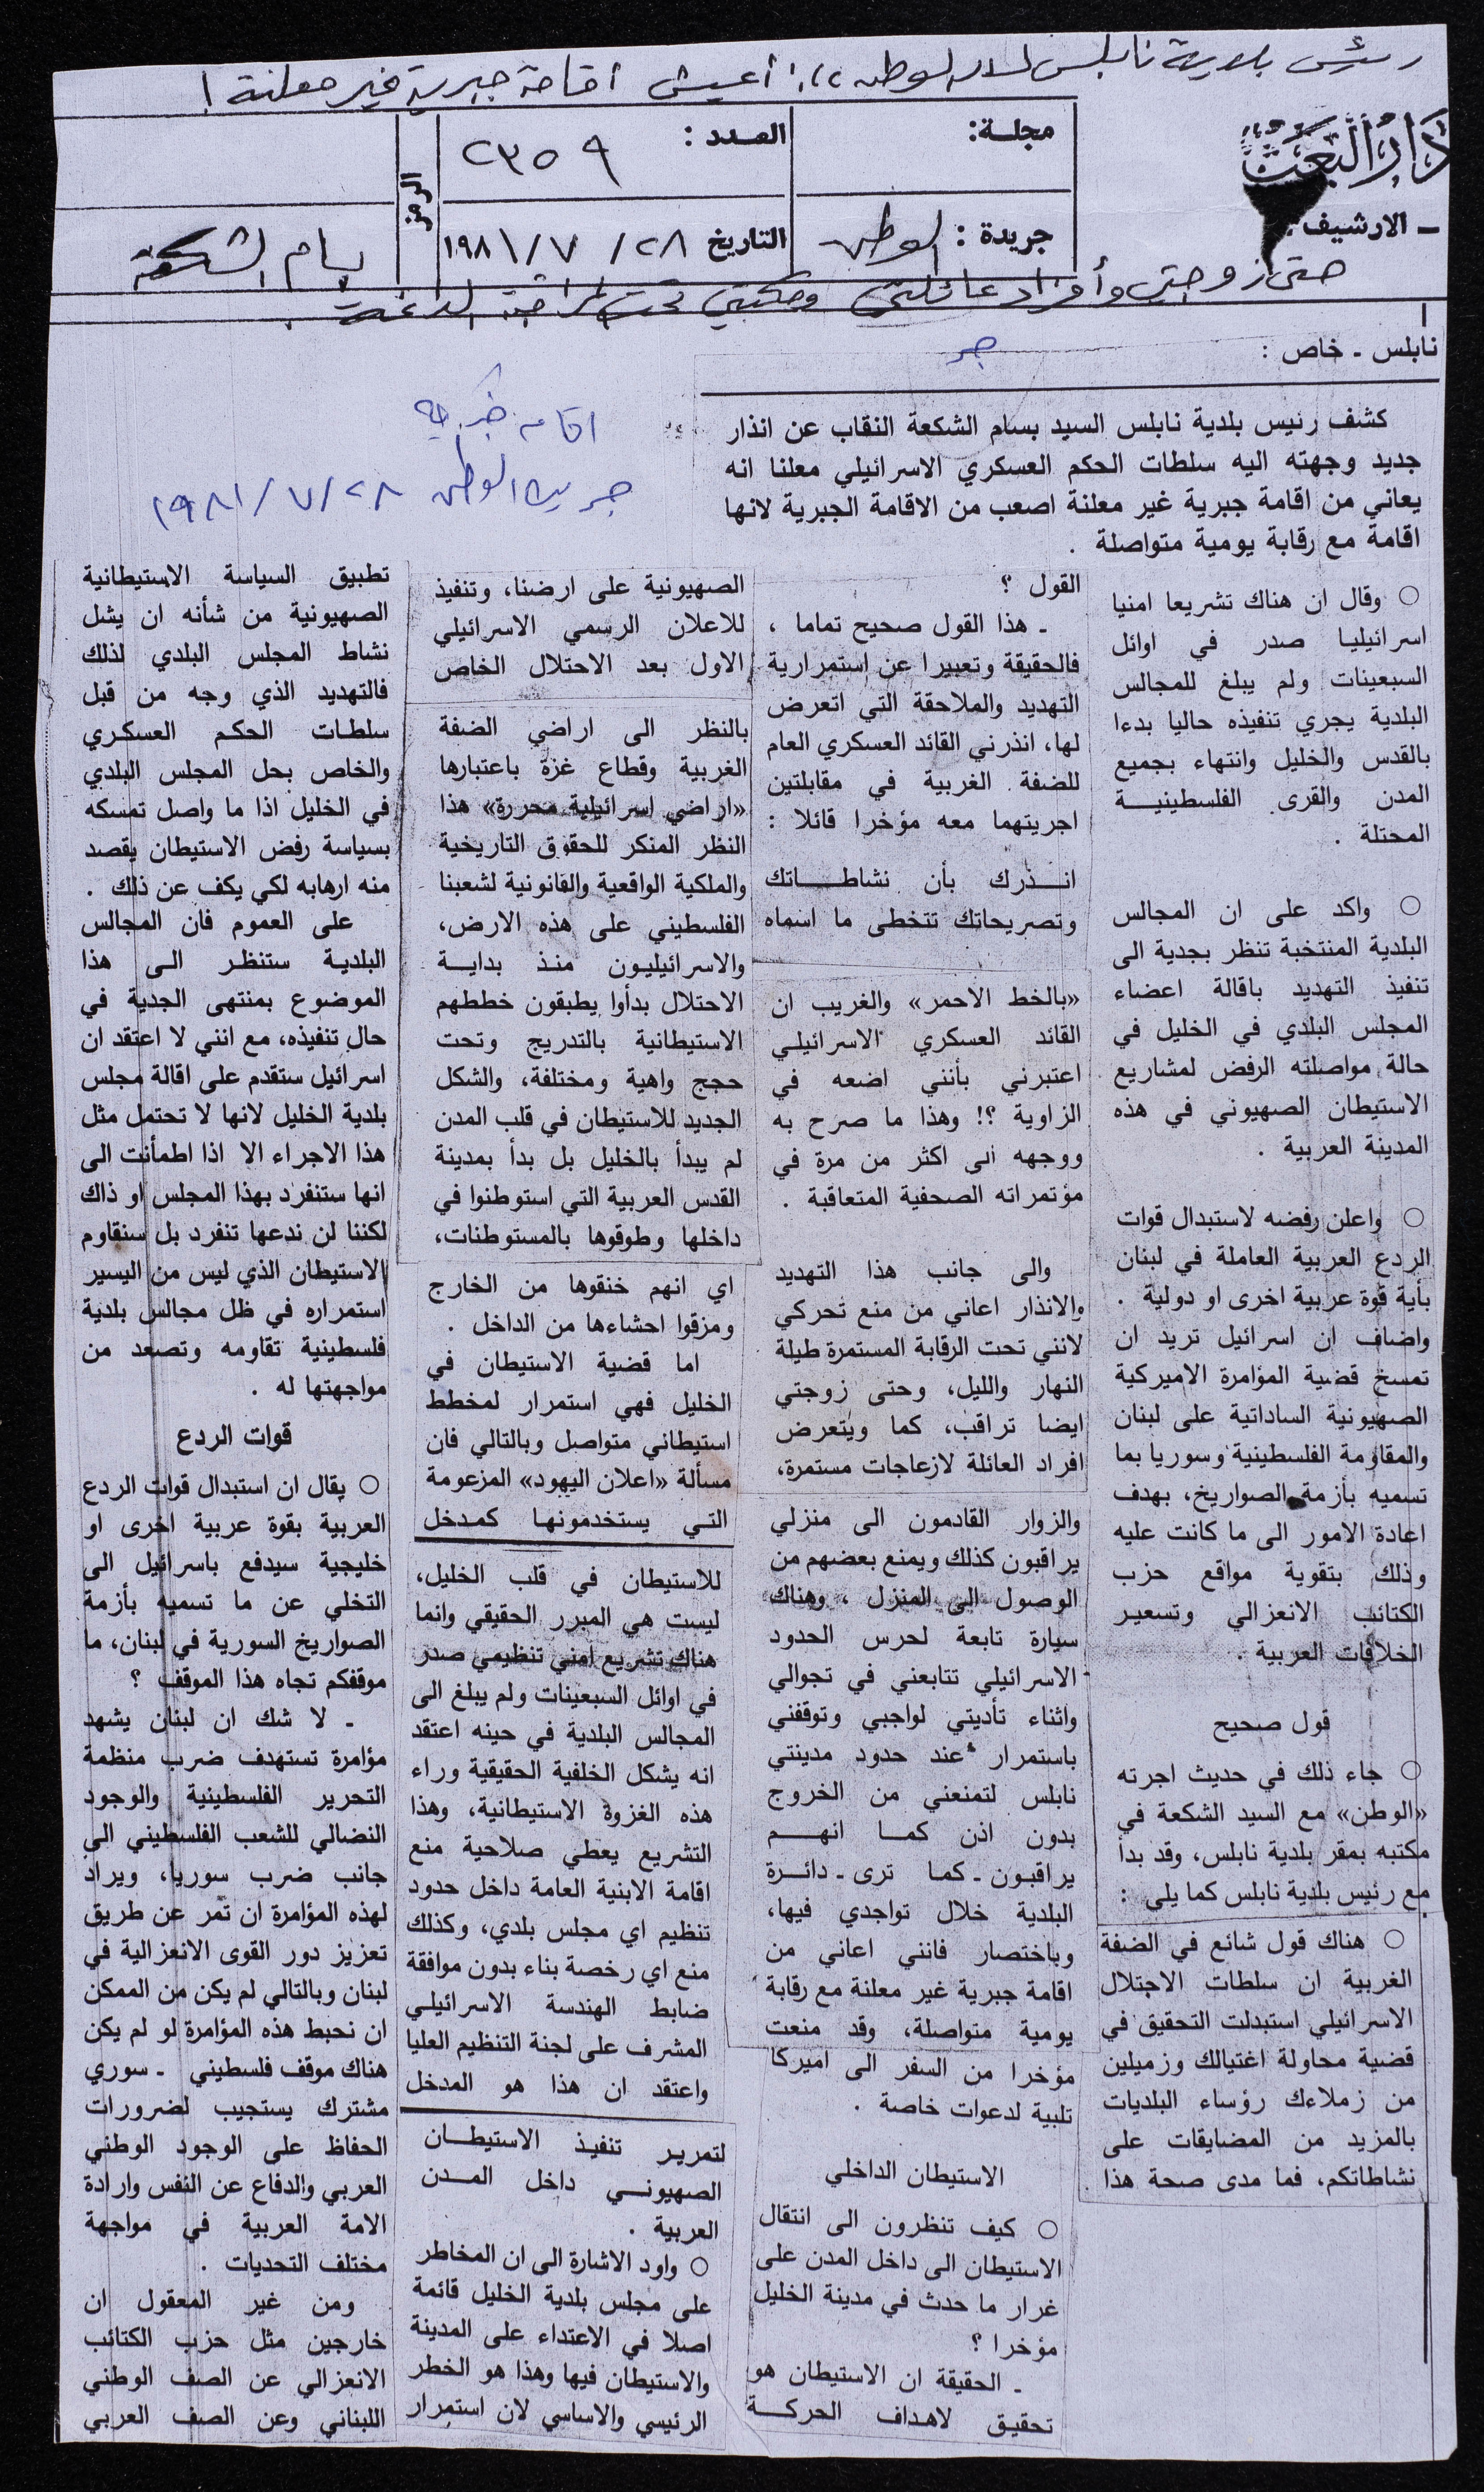 رئيس بلدية نابلس لـ«الوطن»: أعيش اقامة جبرية غير معلنة!
دار البعث
ـ الارشيف
مجلة:
العدد :
٢٣٥٩
جريدة : الوطن
التاريخ ٢٨/ ٧ /١٩٨١
الرمز
بسام الشكعة
حتى زوجتي وأفراد عائلتي ومكتبي تحت المراقبة الدائمة
نابلس ـ خاص :
اقامة جبرية
جريدة الوطن ٢٨/ ٧ /١٩٨١
كشف رئيس بلدية نابلس السيد بسام الشكعة النقاب عن انذار
جديد وجهته اليه سلطات الحكم العسكري الاسرائيلي معلنا انه
يعاني من اقامة جبرية غير معلنة اصعب من الاقامة الجبرية لانها
اقامة مع رقابة يومية متواصلة .
○ وقال ان هناك تشريعا امنيا
اسرائيليا صدر في اوائل
السبعينات ولم يبلغ للمجالس
البلدية يجري تنفيذه حاليا بدءا
بالقدس والخليل وانتهاء بجميع
المدن والقرى الفلسطينية
المحتلة .
○ واكد على ان المجالس
البلدية المنتخبة تنظر بجدية الى
تنفيذ التهديد باقالة اعضاء
المجلس البلدي في الخليل في
حالة مواصلته الرفض لمشاريع
الاستيطان الصهيوني في هذه
المدينة العربية .
○ واعلن رفضه لاستبدال قوات
الردع العربية العاملة في لبنان
بأية قوة عربية اخرى او دولية .
واضاف ان اسرائيل تريد ان
تمسخ قضية المؤامرة الاميركية
الصهيونية الساداتية على لبنان
والمقاومة الفلسطينية وسوريا بما
تسميه بأزمة الصواريخ، بهدف
اعادة الامور الى ما كانت عليه
وذلك بتقوية مواقع حزب
الكتائب الانعزالي وتسعير
الخلافات العربية .
قول صحيح
○ جاء ذلك في حديث اجرته
«الوطن» مع السيد الشكعة في
مكتبه بمقر بلدية نابلس، وقد بدأ
مع رئيس بلدية نابلس كما يلي :
○ هناك قول شائع في الضفة
الغربية ان سلطات الاحتلال
الاسرائيلي استبدلت التحقيق في
قضية محاولة اغتيالك وزميلين
من زملاءك رؤساء البلديات
بالمزيد من المضايقات على
نشاطاتكم، فما مدى صحة هذا
القول ؟
ـ هذا القول صحيح تماما ،
فالحقيقة وتعبيرا عن استمرارية
التهديد والملاحقة التي اتعرض
لها، انذرني القائد العسكري العام
للضفة الغربية في مقابلتين
اجريتهما معه مؤخرا قائلا :
انـــذرك بأن نشاطـــاتك
وتصريحاتك تتخطى ما اسماه
«بالخط الاحمر» والغريب ان
القائد العسكري الاسرائيلي
اعتبرني بأنني اضعه في
الزاوية ؟! وهذا ما صرح به
ووجهه الى اكثر من مرة في
مؤتمراته الصحفية المتعاقبة .
والى جانب هذا التهديد
والانذار اعاني من منع تحركي
لانني تحت الرقابة المستمرة طيلة
النهار والليل، وحتى زوجتي
ايضا تراقب، كما ويتعرض
افراد العائلة لازعاجات مستمرة،
والزوار القادمون الى منزلي
يراقبون كذلك ويمنع بعضهم من
الوصول الى المنزل ، وهناك
سيارة تابعة لحرس الحدود
الاسرائيلي تتابعني في تجوالي
واثناء تأديتي لواجبي وتوقفني
باستمرار عند حدود مدينتي
نابلس لتمنعني من الخروج
بدون اذن كمـــا انهـــم
يراقبون ـ كما ترى ـ دائـرة
البلدية خلال تواجدي فيها،
وباختصار فانني اعاني من
اقامة جبرية غير معلنة مع رقابة
يومية متواصلة، وقد منعت
مؤخرا من السفر الى اميركا
تلبية لدعوات خاصة .
الاستيطان الداخلي
○ كيف تنظرون الى انتقال
الاستيطان الى داخل المدن على
غرار ما حدث في مدينة الخليل
مؤخرا ؟
ـ الحقيقة ان الاستيطان هو
تحقيق لاهداف الحركـــة
الصهيونية على ارضنا، وتنفيذ
للاعلان الرسمي الاسرائيلي
الاول بعد الاحتلال الخاص
بالنظر الى اراضي الضفة
الغربية وقطاع غزة باعتبارها
«اراضي اسرائيلية محررة» هذا
النظر المنكر للحقوق التاريخية
والملكية الواقعية والقانونية لشعبنا
الفلسطيني على هذه الارض،
والاسرائيليون منذ بدايـــة
الاحتلال بدأوا يطبقون خططهم
الاستيطانية بالتدريج وتحت
حجج واهية ومختلفة، والشكل
الجديد للاستيطان في قلب المدن
لم يبدأ بالخليل بل بدأ بمدينة
القدس العربية التي استوطنوا في
داخلها وطوقوها بالمستوطنات،
اي انهم خنقوها من الخارج
ومزقوا احشاءها من الداخل .
اما قضية الاستيطان في
الخليل فهي استمرار لمخطط
استيطاني متواصل وبالتالي فان
مسألة «اعلان اليهود» المزعومة
التي يستخدمونها كمدخل
للاستيطان في قلب الخليل،
ليست هي المبرر الحقيقي وانما
هناك تشريع امني تنظيمي صدر
في اوائل السبعينات ولم يبلغ الى
المجالس البلدية في حينه اعتقد
انه يشكل الخلفية الحقيقية وراء
هذه الغزوة الاستيطانية، وهذا
التشريع يعطي صلاحية منع
اقامة الابنية العامة داخل حدود
تنظيم اي مجلس بلدي، وكذلك
منع اي رخصة بناء بدون موافقة
ضابط الهندسة الاسرائيلي
المشرف على لجنة التنظيم العليا
واعتقد ان هذا هو المدخل
لتمرير تنفيذ الاستيطـــان
الصهيونـــي داخل المـــدن
العربية .
○ واود الاشارة الى ان المخاطر
على مجلس بلدية الخليل قائمة
اصلا في الاعتداء على المدينة
والاستيطان فيها وهذا هو الخطر
الرئيسي والاساسي لان استمرار
تطبيق السياسة الاستيطانية
الصهيونية من شأنه ان يشل
نشاط المجلس البلدي لذلك
فالتهديد الذي وجه من قبل
سلطات الحكم العسكري
والخاص بحل المجلس البلدي
في الخليل اذا ما واصل تمسكه
بسياسة رفض الاستيطان يقصد
منه ارهابه لكي يكف عن ذلك .
على العموم فان المجالس
البلدية ستنظر الى هذا
الموضوع بمنتهى الجدية في
حال تنفيذه، مع انني لا اعتقد ان
اسرائيل ستقدم على اقالة مجلس
بلدية الخليل لانها لا تحتمل مثل
هذا الاجراء الا اذا اطمأنت الى
انها ستنفرد بهذا المجلس او ذاك
لكننا لن ندعها تنفرد بل سنقاوم
الاستيطان الذي ليس من اليسير
استمراره في ظل مجالس بلدية
فلسطينية تقاومه وتصعد من
مواجهتها له .
قوات الردع
○ يقال ان استبدال قوات الردع
العربية بقوة عربية اخرى او
خليجية سيدفع باسرائيل الى
التخلي عن ما تسميه بأزمة
الصواريخ السورية في لبنان، ما
موقفكم تجاه هذا الموقف ؟
ـ لا شك ان لبنان يشهد
مؤامرة تستهدف ضرب منظمة
التحرير الفلسطينية والوجود
النضالي للشعب الفلسطيني الى
جانب ضرب سوريا، ويراد
لهذه المؤامرة ان تمر عن طريق
تعزيز دور القوى الانعزالية في
لبنان وبالتالي لم يكن من الممكن
ان نحبط هذه المؤامرة لو لم يكن
هناك موقف فلسطيني ـ سوري
مشترك يستجيب لضرورات
الحفاظ على الوجود الوطني
العربي والدفاع عن النفس وارادة
الامة العربية في مواجهة
مختلف التحديات .
ومن غير المعقول ان
خارجين مثل حزب الكتائب
الانعزالي عن الصف الوطني
اللبناني وعن الصف العربي